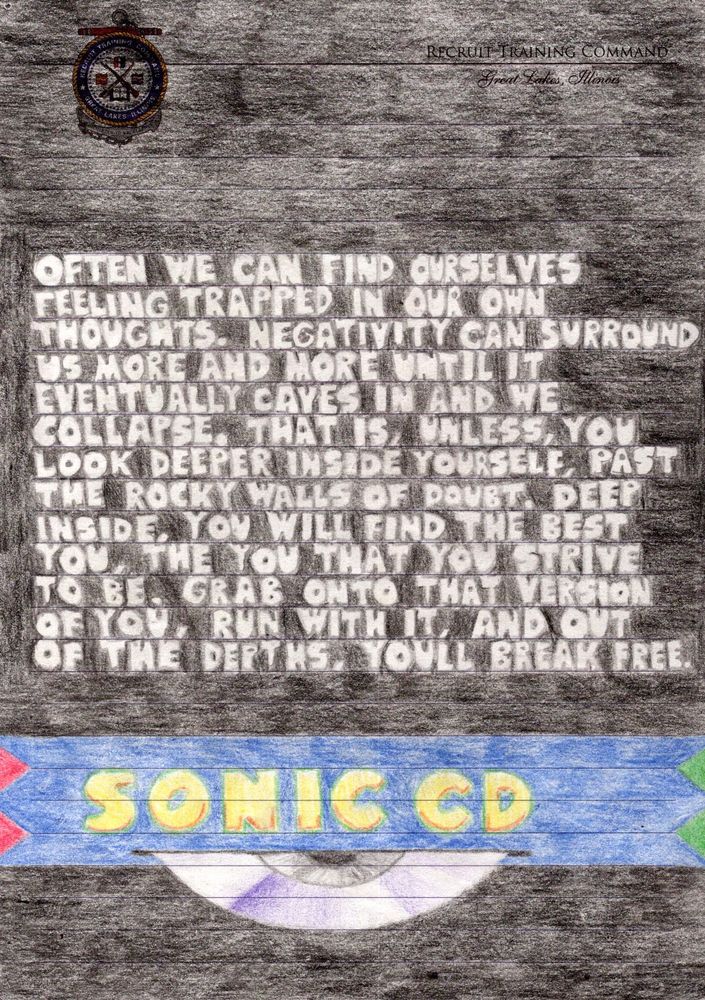 RECRUIT TRAINING COMMAND
Great Lakes, Illinois
RECRUIT TRAINING COMMAND
GREAT LAKES ILLINOIS
OFTEN WE CAN FIND OURSELVES
FEELING TRAPPED IN OUR OWN
THOUGHTS. NEGATIVITY CAN SURROUND
US MORE AND MORE UNTIL IT
EVENTUALLY CAVES IN AND WE
COLLAPSE. THAT IS, UNLESS, YOU
LOOK DEEPER INSIDE YOURSELF, PAST
THE ROCKY WALLS OF DOUBT. DEEP
INSIDE, YOU WILL FIND THE BEST
YOU, THE YOU THAT YOU STRIVE
TO BE. GRAB ONTO THAT VERSION
OF YOU, RUN WITH IT, AND OUT
OF THE DEPTHS, YOU'LL BREAK FREE.
SONIC CD